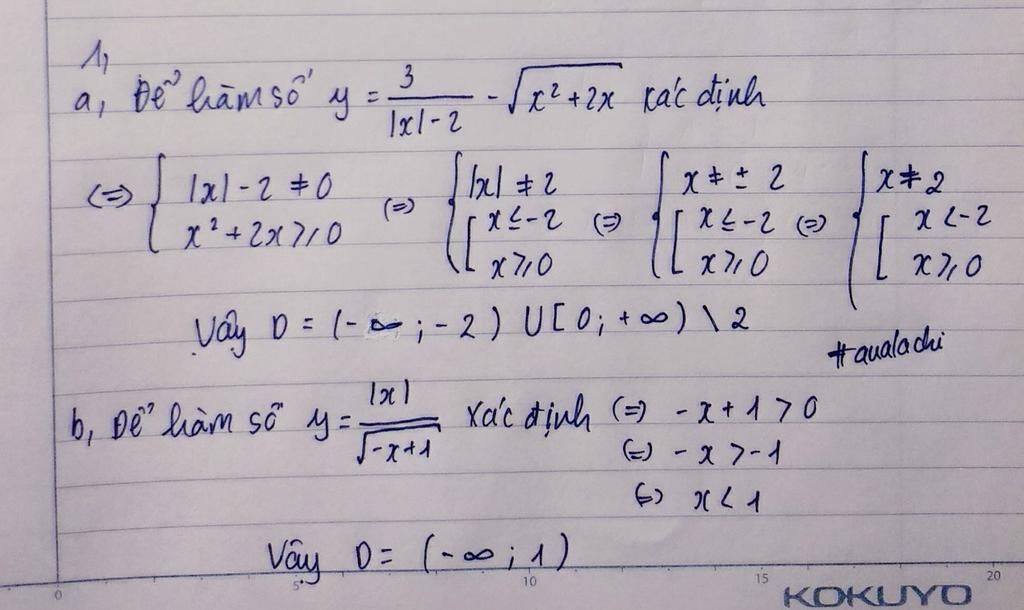 1,
a, Để hàm số y = 3/(|x| - 2) - √(x² + 2x) xác định
(=) { |x| - 2 ≠ 0 ; x² + 2x ≥ 0 (=) { |x| ≠ 2 ; [ x ≤ -2 ; x ≥ 0 (=) { x ≠ ± 2 ; [ x ≤ -2 ; x ≥ 0 (=) { x ≠ 2 ; [ x < -2 ; x ≥ 0
Vậy D = (-∞ ; -2) U [0; +∞) \ 2
#aualachi
b, Để hàm số y = |x|/√(-x+1) xác định (=) -x + 1 > 0
(=) -x > -1
(=) x < 1
Vậy D = (-∞ ; 1)
0 5 10 15 20
KOKUYO